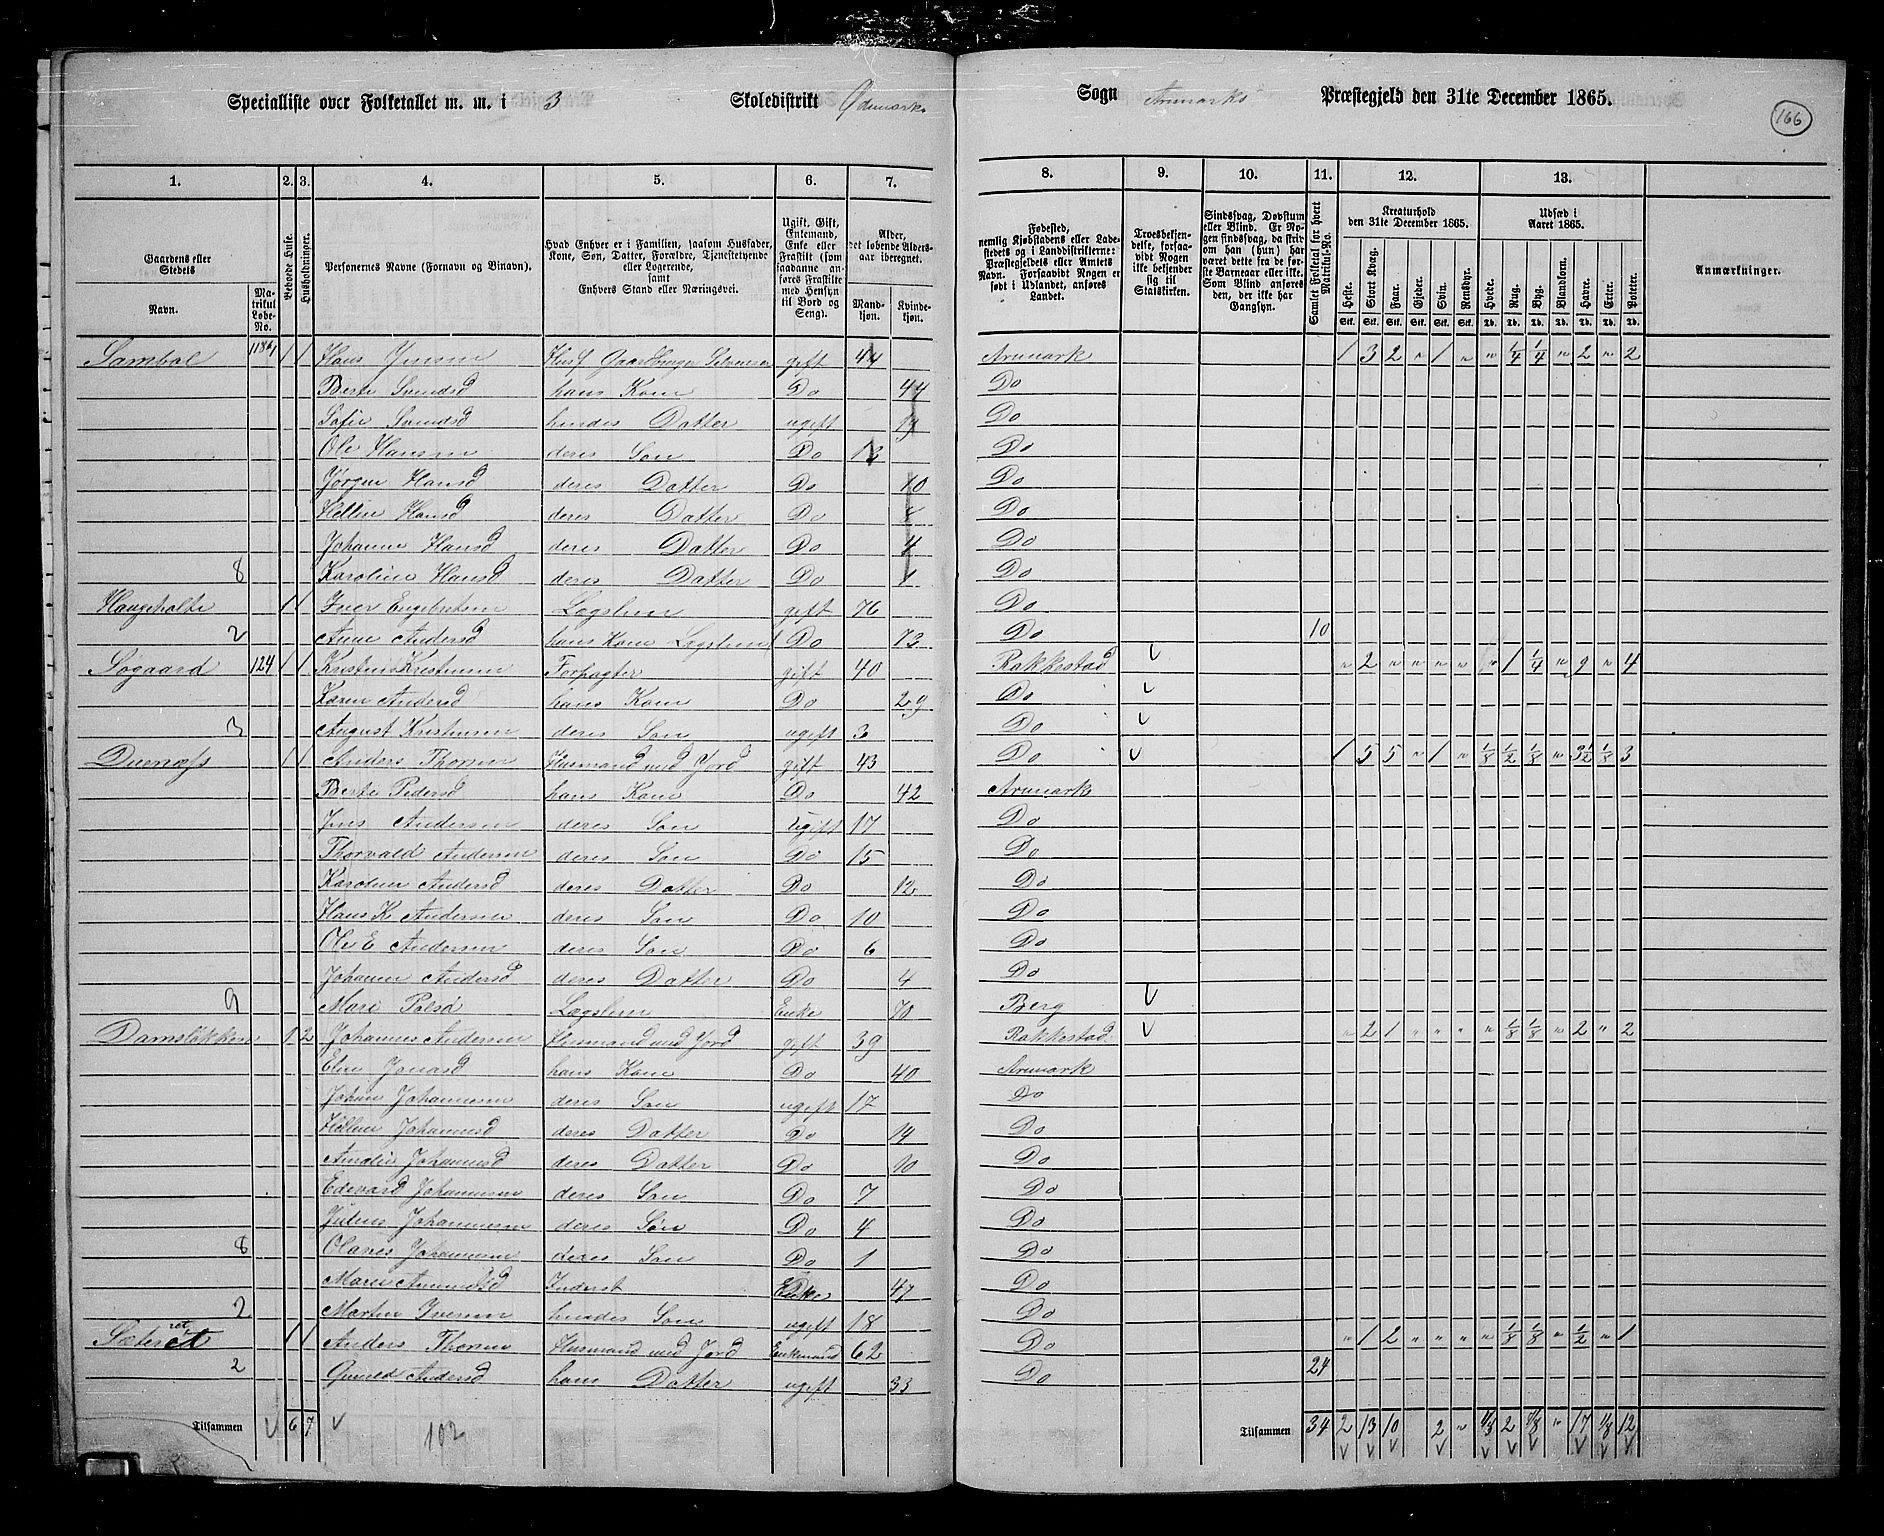 Specialliste over Folketallet m. m. i 3 Skoledistrikt Ødemarks Sogn Aremarks Præstegjeld den 31te December 1865.
166
1. 2. 3. 4. 5. 6. 7. 8. 9. 10. 11. 12. 13.
Gaardens eller Stedets
Navn.
Matrikul Løbe-No.
Beboede Huse.
Husholdninger.
Personernes Navne (Fornavn og Binavn).
Hvad Enhver er i Familien, saasom Husfader, Kone, Søn, Datter, Forældre, Tjenestetyende eller Logerende, samt Enhvers Stand eller Næringsvei.
Ugift, Gift, Enkemand, Enke eller Fraskilt (som saadanne anføres Fraskilte med Hensyn til Bord og Seng).
Alder, det løbende Aldersaar iberegnet.
Mandkjøn.
Kvindekjøn.
Fødested, nemlig Kjøbstadens eller Ladestedets og i Landdistrikterne: Præstegjeldets eller Amtets Navn. Forsaavidt Nogen er født i Udlandet, anføres Landet.
Troesbekjendelse, forsaavidt Nogen ikke bekjender sig til Statskirken.
Sindssvag, Døvstum eller Blind. Er Nogen sindssvag, da skriv om han (hun) har været dette fra de første Barneaar eller ikke. Som Blind anføres den, der ikke har Gangsyn.
Samlet Folketal for hvert Matrikul-No.
Kreaturhold den 31te December 1865.
Heste. Stort Kvæg. Faar. Gjeder. Svin. Rensdyr.
Udsæd i Aaret 1865.
Hvede. Rug. Byg. Blandkorn. Havre. Erter. Poteter.
Anmærkninger.
Sambøl 118b/1 1 1 Hans Jensen gift 44 Aremark 1 3 2 " 1 " " 1/4 1/4 " 2 " 2
Berte Svendsd hans Kone Do 44 Do
Sofie Svendsd hendes Datter ugift 19 Do
Ole Hansen deres Søn Do 12 Do
Jørgen Hansd deres Datter Do 10 Do
Helline Hansd deres Datter Do 8 Do
Johanne Hansd deres Datter Do 4 Do
8 Karoline Hansd deres Datter Do 1 Do
Haugeholte 1 1 Iver Engebretsen Lægslem gift 76 Do
2 Anne Andersd hans Kone Lægslem Do 73 Do 10
Søgaard 124 1 1 Kristens Kristensen Forpagter gift 40 Rakkestad v " 2 " " " " " 1 1/4 " 9 " 4
Karen Andersd hans Kone Do 29 Do v
3 August Kristensen deres Søn ugift 3 Do v
Duenæss 1 1 Anders Thoresen Husmand med Jord gift 43 Do v 1 5 5 " 1 " 1/8 1/2 1/8 " 3 1/2 1/8 3
Berte Pedersd hans Kone Do 42 Aremark
Jens Andersen deres Søn Ugift 17 Do
Thorvald Andersen deres Søn Do 15 Do
Karoline Andersd deres Datter Do 12 Do
Hans K Andersen deres Søn Do 10 Do
Ole E Andersen deres Søn Do 6 Do
Johanne Andersd deres Datter Do 4 Do
9 Mari Polsd Lægslem Enke 70 Berg v
Damsløkken 1 2 Johannes Andersen Husmand med Jord gift 39 Rakkestad v " 2 1 " " " " 1/8 1/8 " 2 " 2
Eline Jonasd hans Kone Do 40 Aremark
Johan Johannesen deres Søn ugift 17 Do
Helline Johannesd deres Datter Do 14 Do
Andrie Johannesd deres Datter Do 10 Do
Edevard Johannesen deres Søn Do 7 Do
Julius Johannesen deres Søn Do 4 Do
8 Olaves Johannesen deres Søn Do 1 Do
Maren Amundsd Inderst Enke 47 Do
2 Martin Iversen hendes Søn ugift 18 Do
Sæteret 1 1 Anders Thoresen Husmand med Jord Enkemand 62 Do " 1 2 " " " " 1/8 1/8 " 1/2 " 1
2 Gunild Andersd hans Datter ugift 33 Do 24
Tilsammen v 6 7 v 102
Tilsammen 34 2 13 10 2 " 1/8 2 " 17 1/8 12